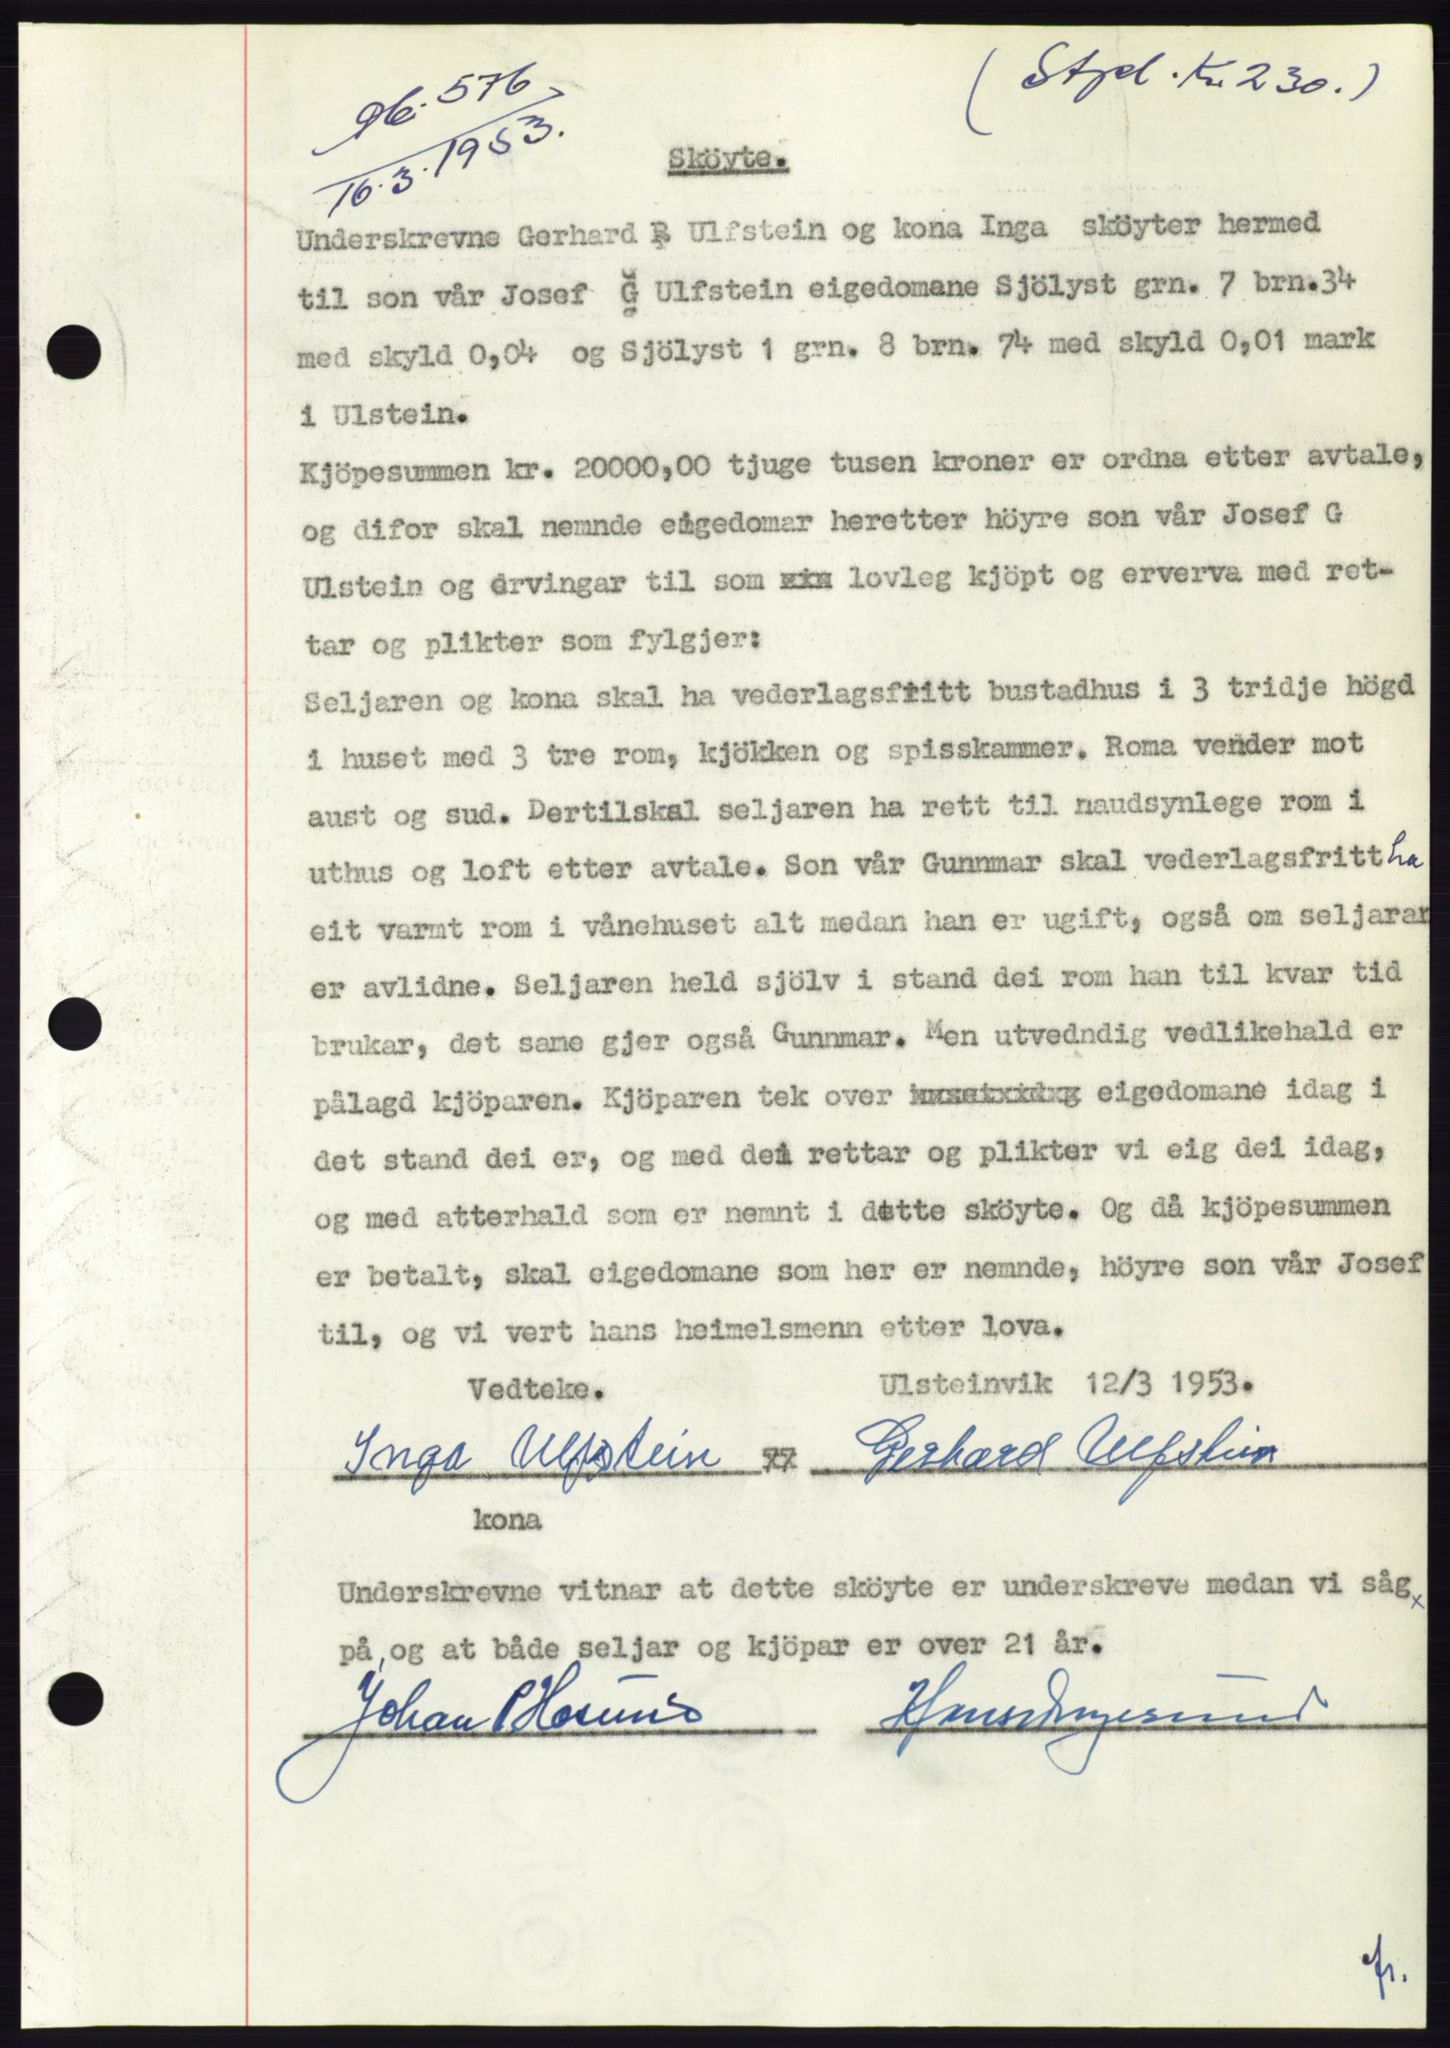 ( Stpl. Kr 230.)
gb. 576
16.3.1953.
Sköyte.
Underskrevne Gerhard B Ulfstein og kona Inga sköyter hermed
til son vår Josef G Ulfstein eigedomane Sjölyst grn. 7 brn.34
med skyld 0,04 og Sjölyst 1 grn. 8 brn. 74 med skyld 0,01 mark
i Ulstein.
Kjöpesummen kr. 20000,00 tjuge tusen kroner er ordna etter avtale,
og difor skal nemnde eigedomar heretter höyre son vår Josef G
Ulstein og arvingar til som lovleg kjöpt og erverva med ret-
tar og plikter som fylgjer:
Seljaren og kona skal ha vederlagsfritt bustadhus i 3 tridje högd
i huset med 3 tre rom, kjökken og spisskammer. Roma vender mot
aust og sud. Dertilskal seljaren ha rett til naudsynlege rom i
uthus og loft etter avtale. Son vår Gunnmar skal vederlagsfritt ha
eit varmt rom i vånehuset alt medan han er ugift, også om seljarar
er avlidne. Seljaren held sjölv i stand dei rom han til kvar tid
brukar, det sane gjer også Gunnmar. Men utvedndig vedlikehald er
pålagd kjöparen. Kjöparen tek over eigedomane idag i
det stand dei er, og med dei rettar og plikter vi eig dei idag,
og med atterhald som er nemnt i dette sköyte. Og då kjöpesummen
er betalt, skal eigedomane som her er nemnde, höyre son vår Josef
til, og vi vert hans heimelsmenn etter lova.
Vedteke. Ulsteinvik 12/3 1953.
Inga Ulfstein Gerhard Ulfstein
kona
Underskrevne vitnar at dette sköyte er underskreve medan vi såg
på, og at både seljar og kjöpar er over 21 år.
Johan P Hasund